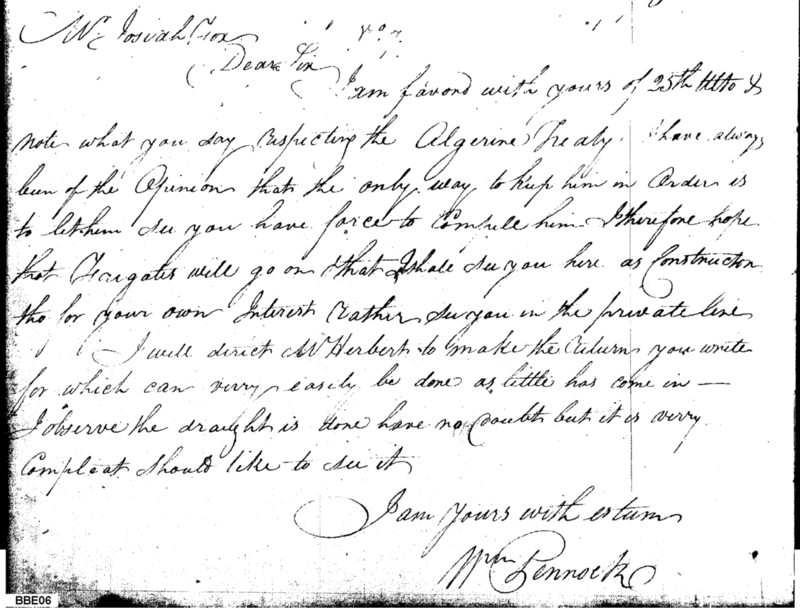 Mr. Josiah Fox
Dear Sir
I am favord with yours of 25th Ulto &
note what you say respecting the Algerine Treaty. I have always
been of the Opinion that the only way to keep him in Order is
to let him see you have force to Compell him I therefore hope
that Frigates will go on that I shale see you here as Constructor
tho for your own Interest Rather see you in the private line
I will direct Mr Herbert to make the Return you write
for which can verry easily be done as little has come in —
I observe the draught is done have no doubt but it is verry
Compleat should like to see it
I am yours with esteem
Wm Pennock
BBE06